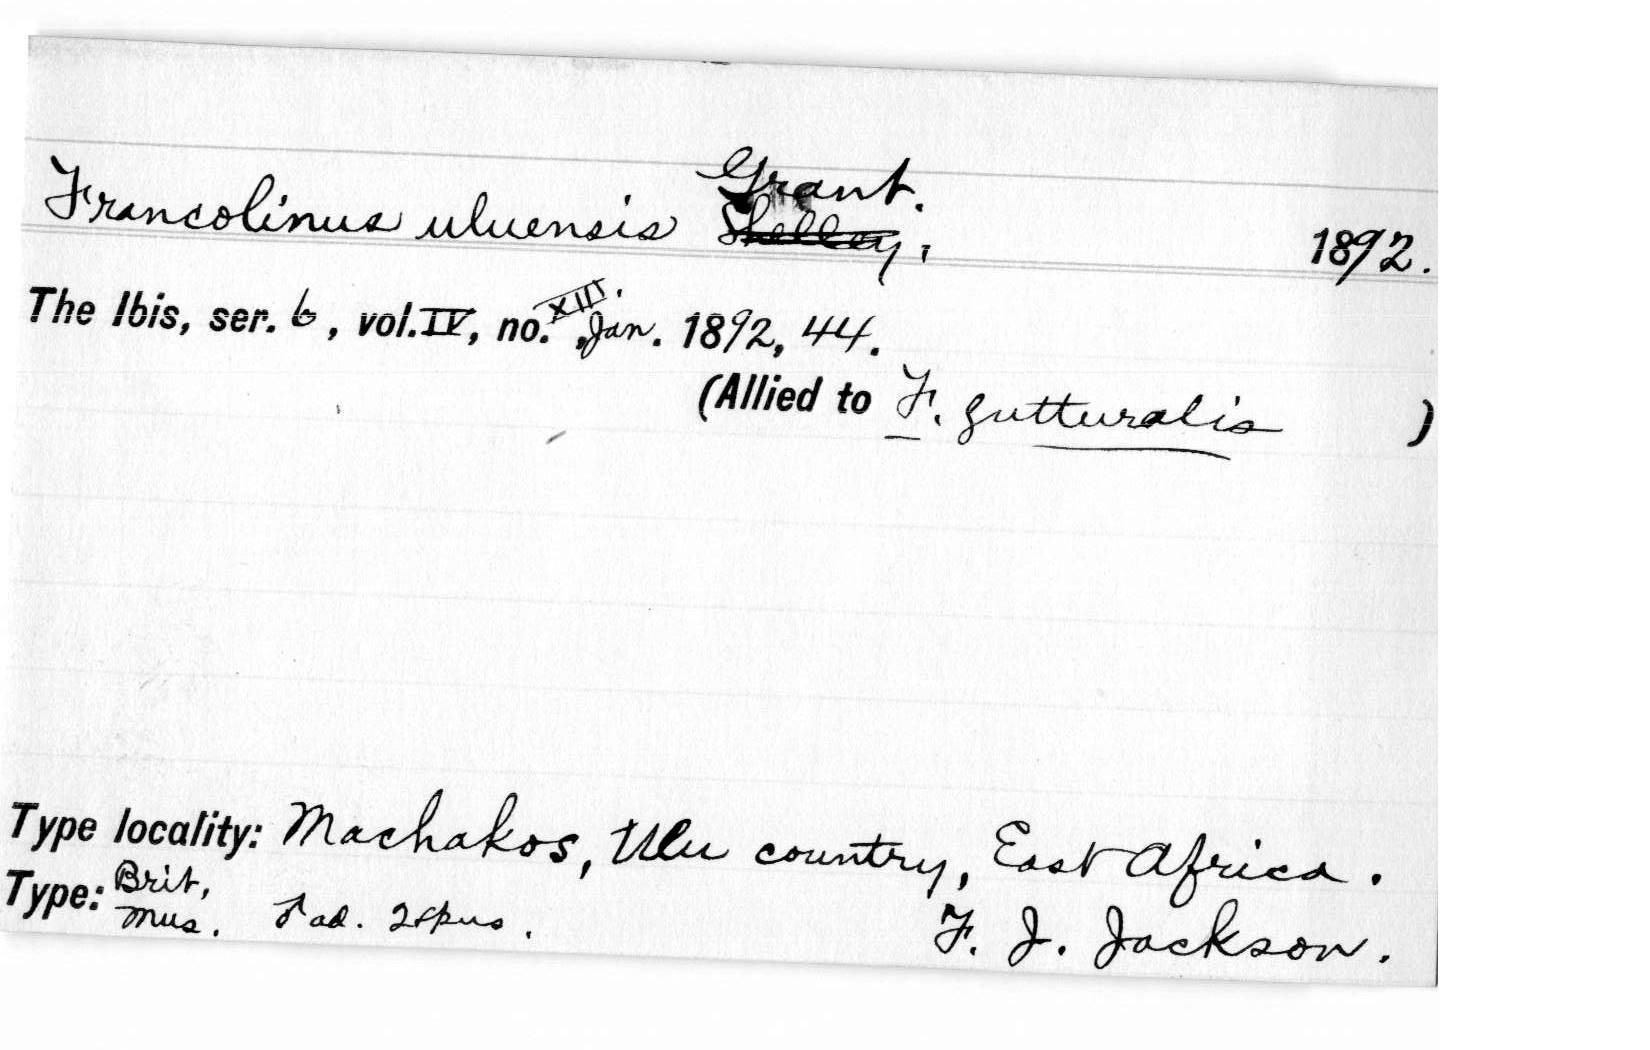 Grant.
Francolinus uluensis Shelley. 1892.
The Ibis, ser. 6, vol. IV, no. XIII. Jan. 1892, 44.
(Allied to F. gutturalis )
Type locality: Machakos, Ulu country, East Africa.
Type: Brit. Mus. ♂ ad. 2 spurs. F. J. Jackson.